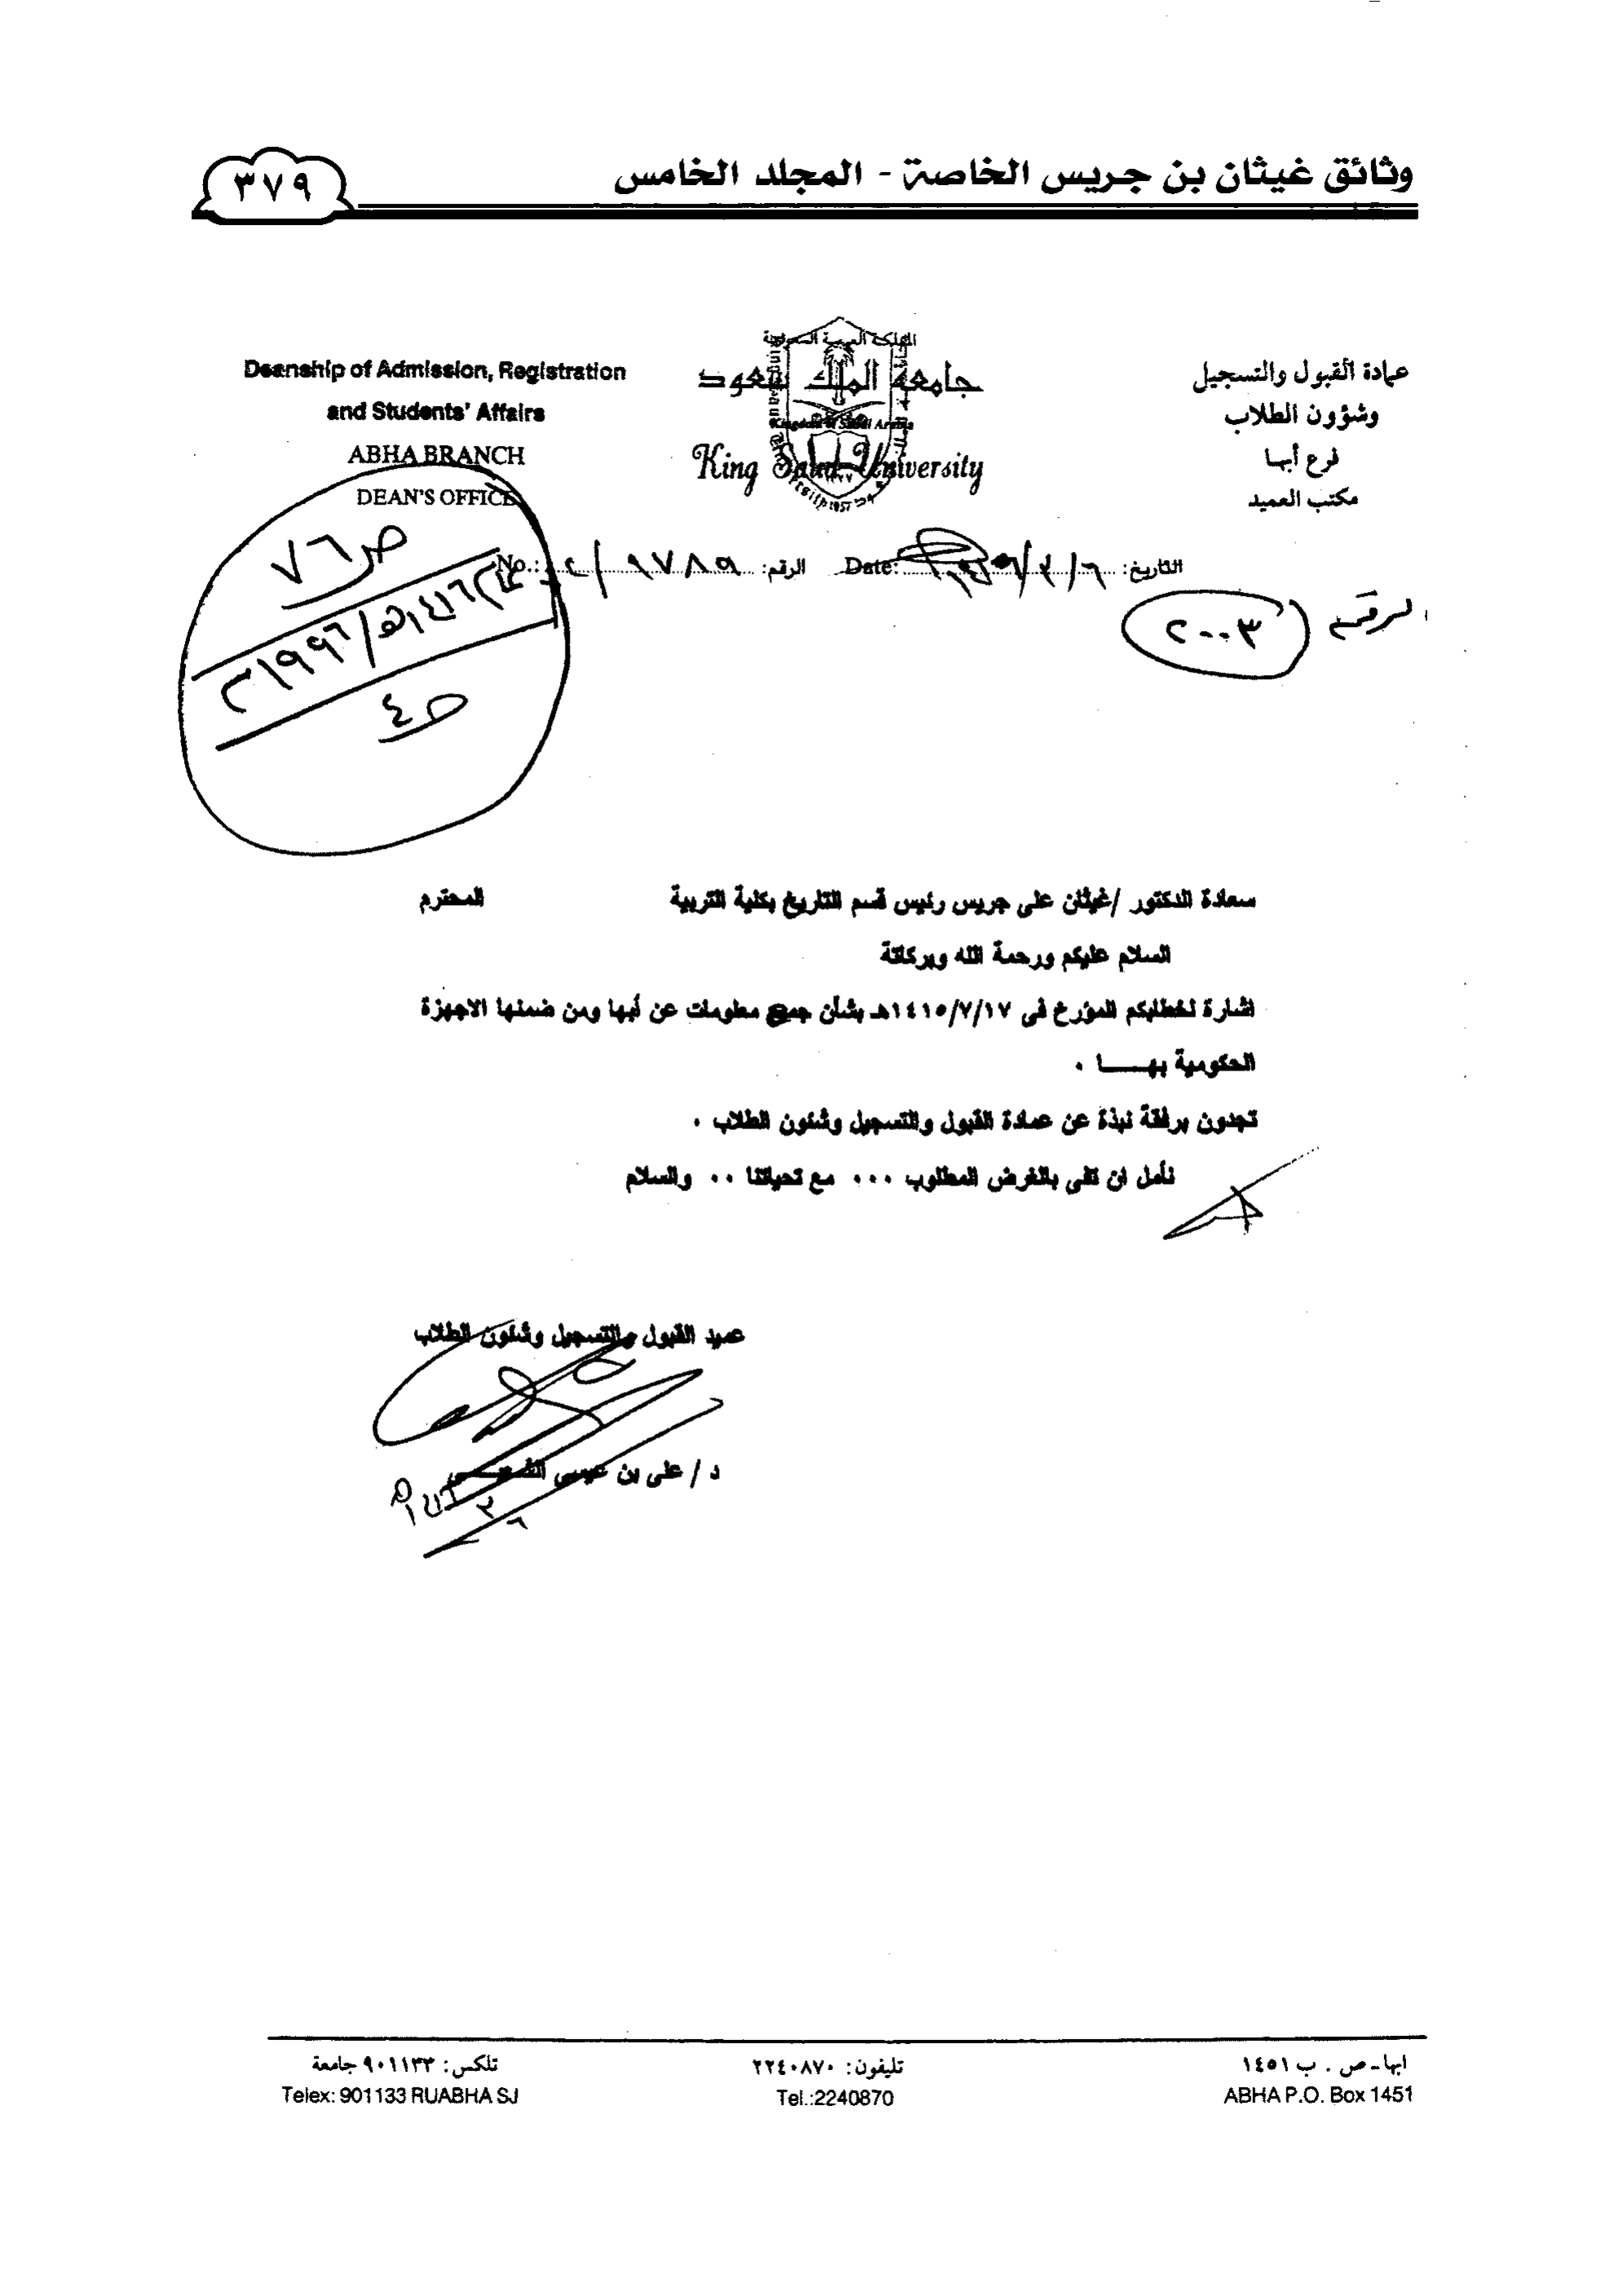 وثائق غيثان بن جريس الخاصة - المجلد الخامس
٣٧٩
عمادة القبول والتسجيل
وشؤون الطلاب
فرع أبها
مكتب العميد
المملكة العربية السعودية
جامعة الملك سعود
Kingdom of Saudi Arabia
King Saud University
Deanship of Admission, Registration
and Students' Affairs
ABHA BRANCH
DEAN'S OFFICE
التاريخ: ٦/٣/ Date: الرقم: ٩٧٨٩ No.:
الرقم ٢٠٠٣
ص ٧٦
١٤١٦هـ/١٩٩٦م
سعادة الدكتور /غيثان على جريس رئيس قسم التاريخ بكلية التربية المحترم
السلام عليكم ورحمة الله وبركاتة
اشارة لخطابكم المؤرخ فى ١٤١٥/٧/١٧هـ بشأن جمع معلومات عن أبها ومن ضمنها الاجهزة
الحكومية بهـــا .
تجدون برفقة نبذة عن عمادة القبول والتسجيل وشئون الطلاب .
نأمل ان تفى بالغرض المطلوب ... مع تحياتنا .. والسلام
عميد القبول والتسجيل وشئون الطلاب
د / على بن عيسى
ابها - ص . ب ١٤٥١
ABHA P.O. Box 1451
تليفون: ٢٢٤٠٨٧٠
Tel.:2240870
تلكس: ٩٠١١٣٣ جامعة
Telex: 901133 RUABHA SJ